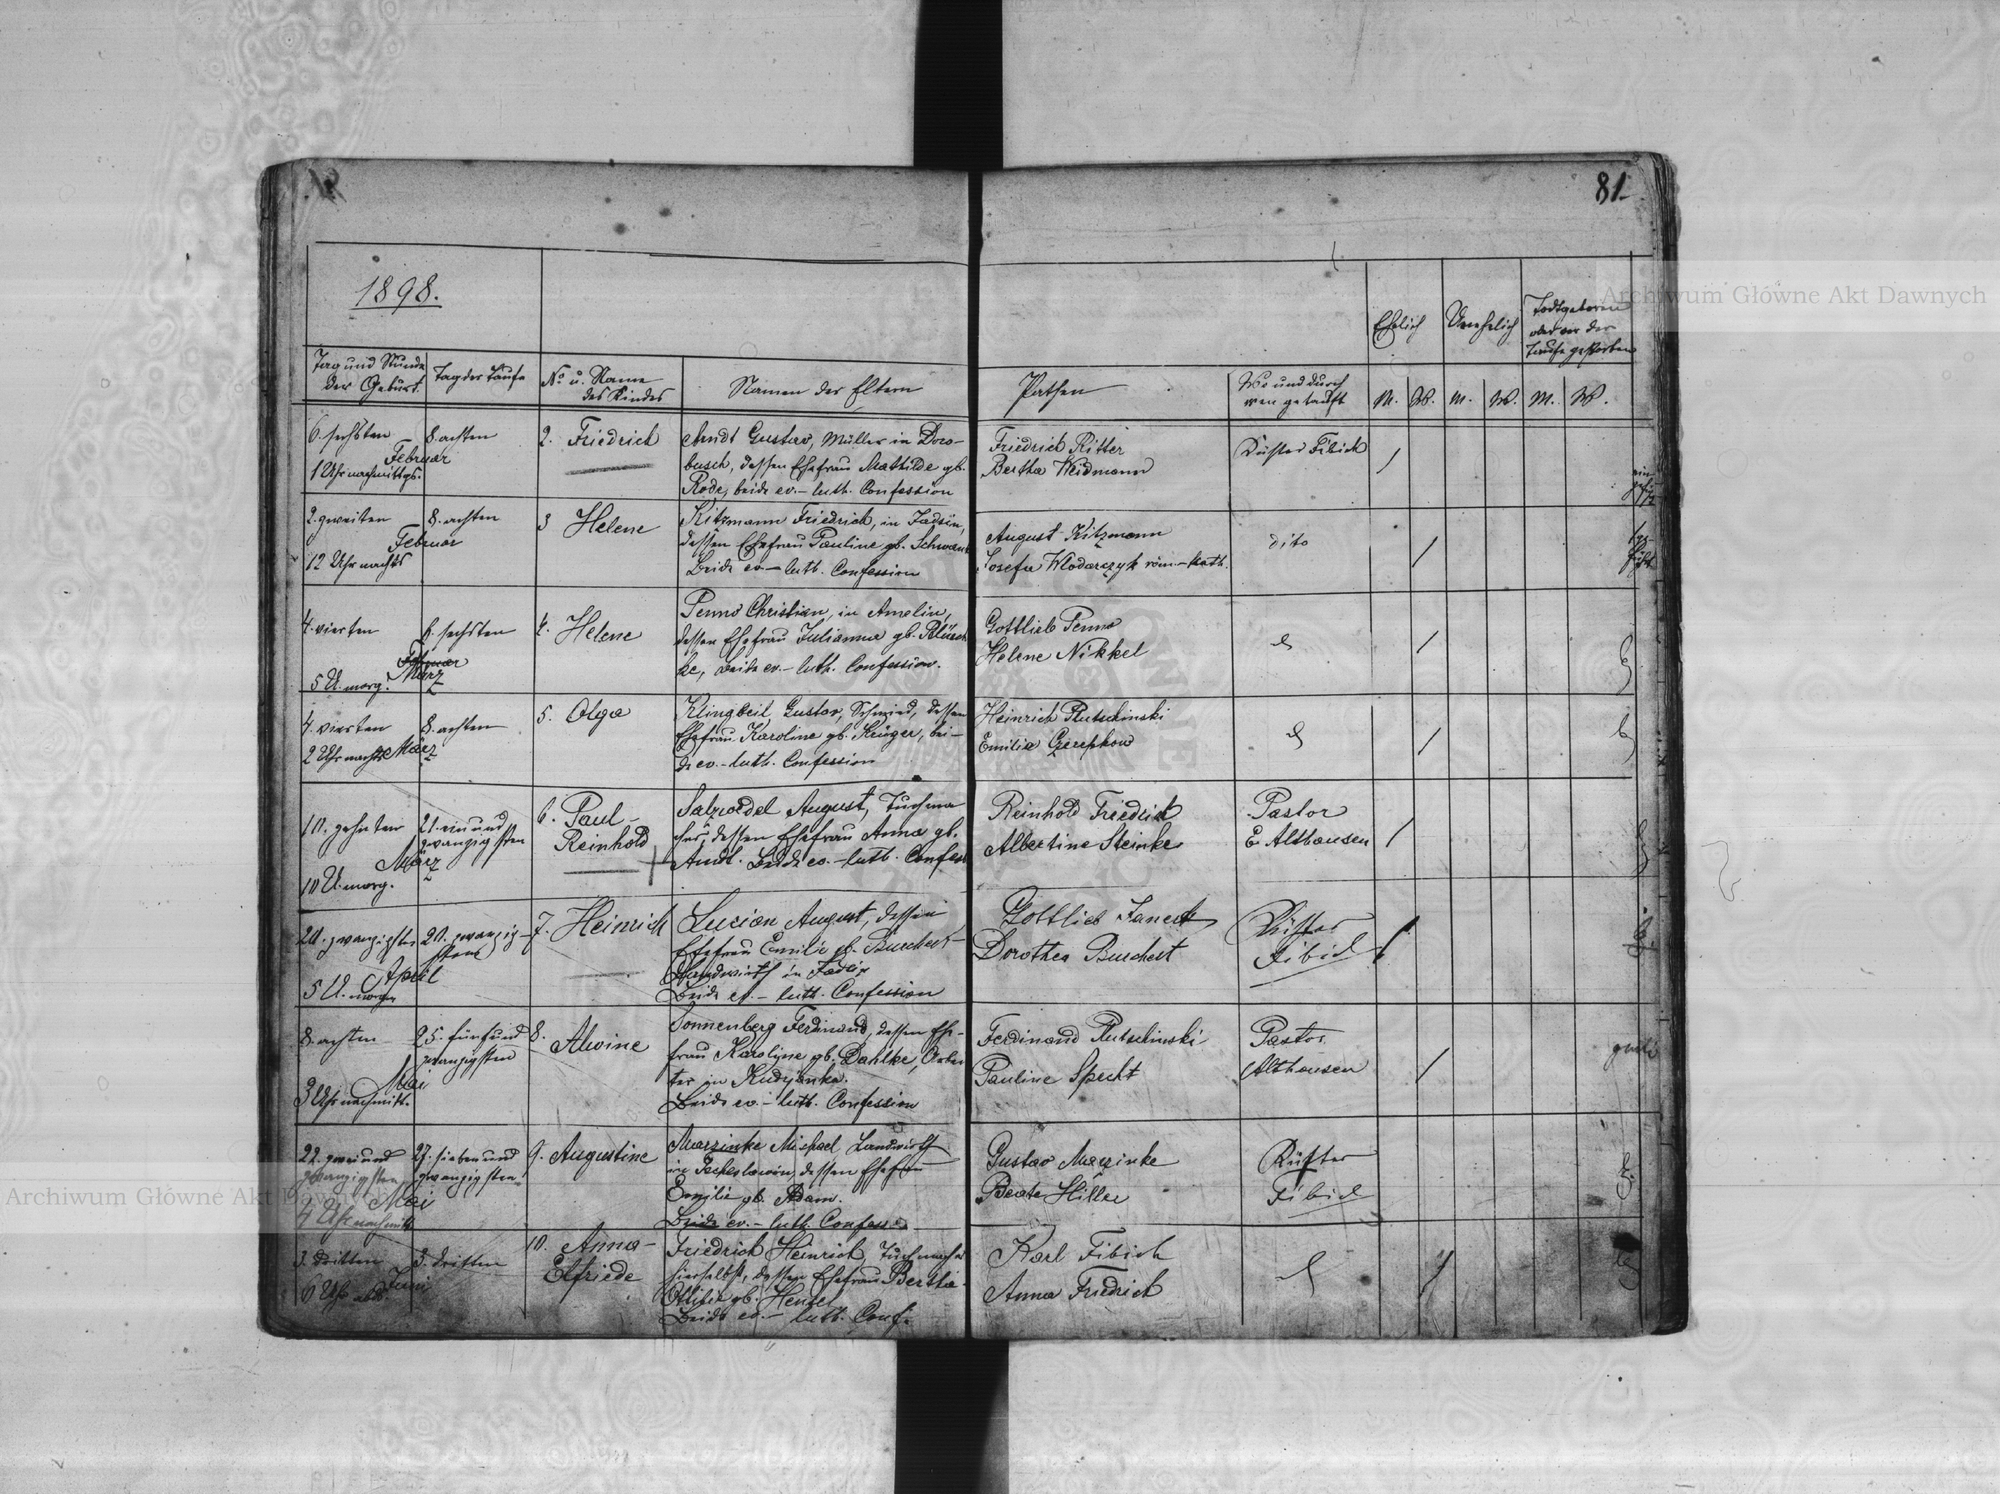 81.
1898.
Ehelich
Unehelich
Todtgeboren
oder vor der
Taufe gestorben
Tag und Stunde
der Geburt.
Tag der Taufe
No u. Name
des Kindes
Namen der Eltern
Pathen
Wo und durch
wen getauft
M. W. M. W. M. W.
6. sechsten
Februar
1 Uhr nachmittgs.
8. achten
2. Friedrich
Arndt Gustav, Müller in Doro-
busch, dessen Ehefrau Mathilde gb.
Rode, beide ev.- luth. Confession
Friedrich Ritter
Bertha Weidmann
Küster Fibich
2. zweiten
Februar
12 Uhr nachts
8. achten
3 Helene
Kitzmann Friedrich, in
dessen Ehefrau Pauline gb.
Beide ev.- luth. Confession
August Kitzmann
Josefa Wlodarczyk röm.-kath.
dito
4. vierten
März
5 U. morg.
6. sechsten
4. Helene
Penno Christian, in Amelin,
dessen Ehefrau Julianna gb.
ke, beide ev.- luth. Confession.
Gottlieb Penno
Helene Nikkel
4. vierten
März
2 Uhr nachts
8. achten
5. Olga
Klingbeil, Gustav, Schmied, dessen
Ehefrau Karoline gb. Krüger, bei-
de ev.- luth. Confession
Heinrich Rutschinski
Emilie
10. zehnten
März
10 U. morg.
21. ein und
zwanzigsten
6. Paul-
Reinhold
Salzwedel August, Tuchma
cher, dessen Ehefrau Anna gb.
Arndt. Beide ev.- luth. Confess
Reinhold Friedrich
Albertine Steinke
Pastor
E. Althausen
20. zwanzigsten
April
5 U. morgen
20. zwanzig-
sten
7. Heinrich
Lucian August, dessen
Ehefrau Emilie gb. Burchert
Landwirth in
Beide ev.- luth. Confession
Gottlieb
Dorothea Burchert
Küster
Fibich
8. achten
Mai
3 Uhr nachmitt.
25. fünfund
zwanzigsten
8.
Alwine
Sonnenberg Ferdinand, dessen Ehe-
frau Karoline gb. Dahlke, Arbei
ter in
Beide ev.- luth. Confession
Ferdinand Rutschinski
Pauline Specht
Pastor
Althausen
22. zwei und
zwanzigsten
Mai
4 Uhr nachmitt.
27. sieben und
zwanzigsten
9. Augustine
Marzinke Michael Landwirth
in dessen Ehefrau
Emilie gb. Adam.
Beide ev.- luth. Confess
Gustav Marzinke
Beate Hiller
Küster
Fibich
3. dritten
Juni
6 Uhr
3. dritten
10. Anna-
Elfriede
Friedrich Heinrich, Tuchmacher
hierselbst, dessen Ehefrau Bertha-
Ottilie gb. Hensel
Beide ev.- luth. Conf.
Karl Fibich
Anna Friedrich
Archiwum Główne Akt Dawnych
Archiwum Główne Akt Dawnych